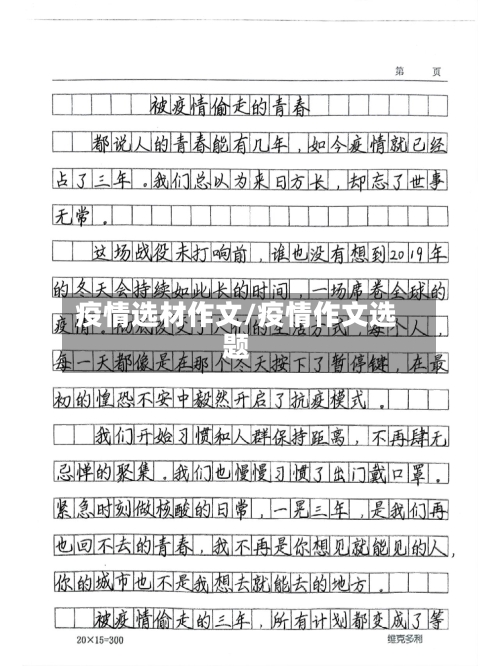 第 页
被疫情偷走的青春
都说人的青春能有几年，如今疫情就已经
占了三年。我们总以为来日方长，却忘了世事
无常。
这场战役未打响前，谁也没有想到2019年
的冬天会持续如此长的时间，一场席卷全球的
疫情选材作文/疫情作文选
题
疫情，
的生活方式，每个人，
每一天都像是在那个冬天按下了暂停键，在最
初的惶恐不安中毅然开启了抗疫模式。
我们开始习惯和人群保持距离，不再肆无
忌惮的聚集。我们也慢慢习惯了出门戴口罩。
紧急时刻做核酸的日常，一晃三年，是我们再
也回不去的青春，我不再是你想见就能见的人，
你的城市也不是我想去就能去的地方。
被疫情偷走的三年，所有计划都变成了等
20×15=300
维克多利